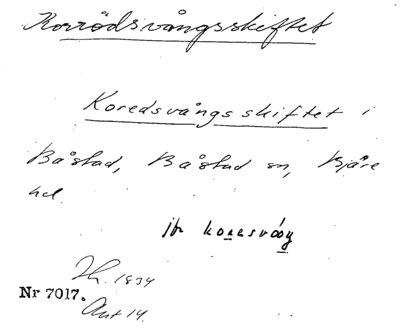 Korrödsvångsskiftet
Koredsvångsskiftet i
Båstad, Båstad sn, Bjäre
hd.
jfr koresvång
Nr 7017.
1834
Akt 14